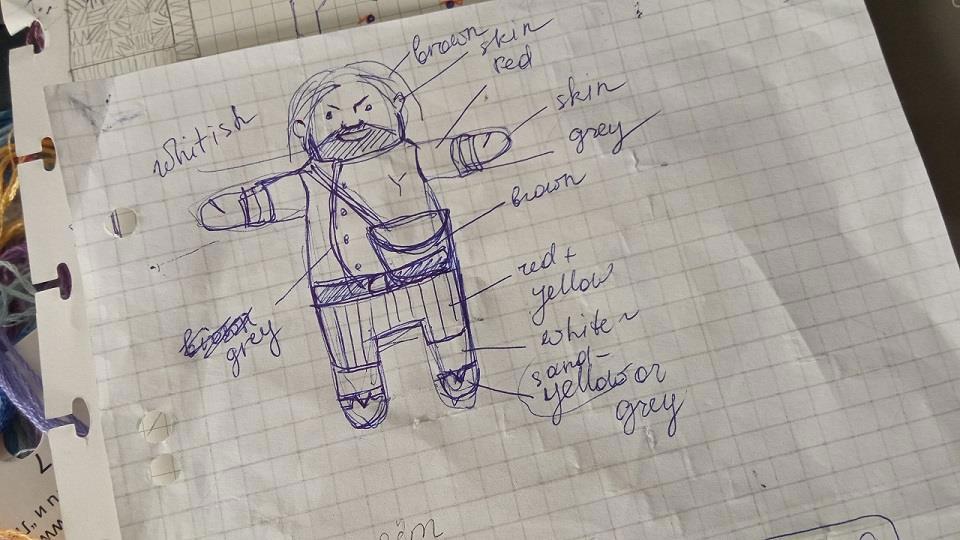 brown
skin
red
skin
grey
whitish
brown
red +
yellow
grey
white
sand-
yellow or
grey